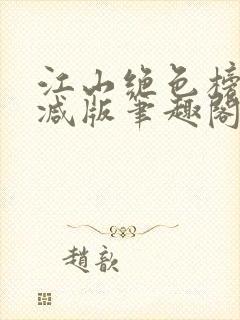 江山绝色榜
减版笔趣阁
趙歆